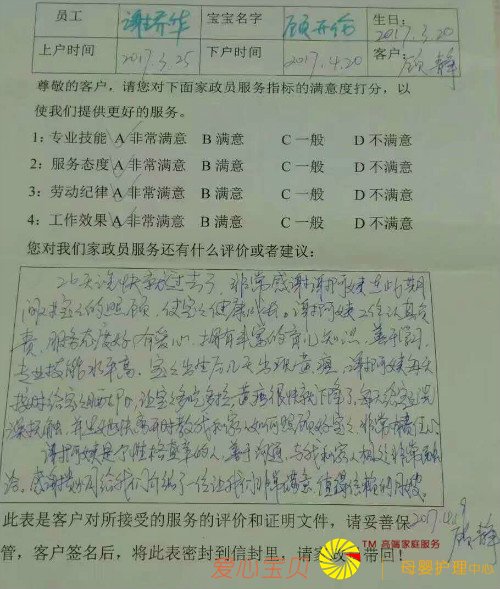 员工 谢娇华 宝宝名字 顾 生日: 2017.3.20
上户时间 2017.3.25 下户时间 2017.4.20 客户: 顾静
尊敬的客户，请您对下面家政员服务指标的满意度打分，以
使我们提供更好的服务。
1: 专业技能 A 非常满意 B 满意 C 一般 D 不满意
2: 服务态度 A 非常满意 B 满意 C 一般 D 不满意
3: 劳动纪律 A 非常满意 B 满意 C 一般 D 不满意
4: 工作效果 A 非常满意 B 满意 C 一般 D 不满意
您对我们家政员服务还有什么评价或者建议:
26天这快就过去了，非常感谢谢阿姨在此期
间对宝宝的照顾，使宝宝健康成长。谢阿姨工作认真负
责，服务态度好，有爱心，拥有丰富的育儿知识，善于学习，
专业技能水平高。宝宝出生后几天出现黄疸，谢阿姨每天
按时给宝宝，让宝宝多吃多拉，黄疸很快就下降了，每天给宝宝洗
澡抚触，并且也教我和家人如何照顾好宝宝，非常有责任心
谢阿姨是个性格直率的人，善于沟通，与我和家人相处非常融
洽。感谢公司给我们介绍了一位让我们非常满意，值得信赖的月嫂。
此表是客户对所接受的服务的评价和证明文件，请妥善保 2017.4.19
管，客户签名后，将此表密封到信封里，请家政 带回！ 顾静
爱心宝贝 TM 高端家庭服务
母婴护理中心